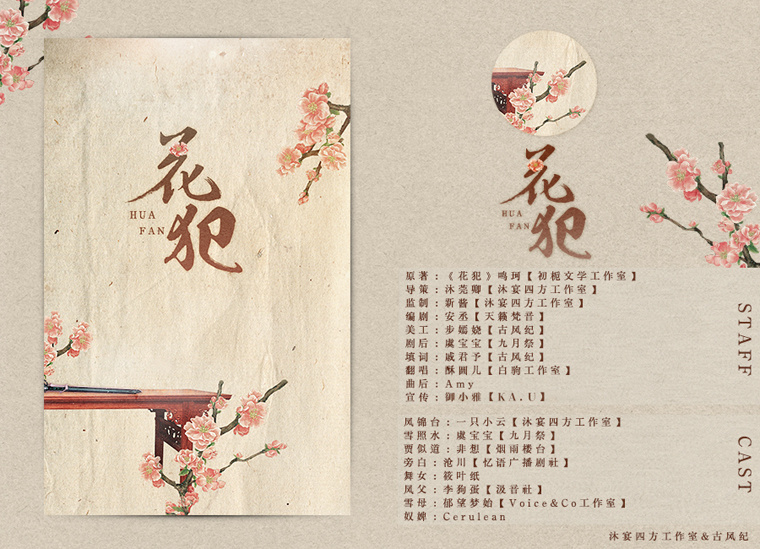 花犯
HUA
FAN
花犯
HUA
FAN
原著:《花犯》鸣珂【初栀文学工作室】
导策:沐莞卿【沐宴四方工作室】
监制:新酱【沐宴四方工作室】
编剧:安丞【天籁梵音】
美工:步嫣娆【古风纪】
剧后:虞宝宝【九月祭】
填词:戚君予【古风纪】
翻唱:酥圆儿【白驹工作室】
曲后:Amy
宣传:御小雅【KA.U】
STAFF
凤锦台:一只小云【沐宴四方工作室】
雪照水:虞宝宝【九月祭】
贾似道:非想【烟雨楼台】
旁白:沧川【忆语广播剧社】
舞女:筱叶纸
凤父:李狗蛋【汲音社】
雪母:郁望梦始【Voice&Co工作室】
奴婢:Cerulean
CAST
沐宴四方工作室&古风纪